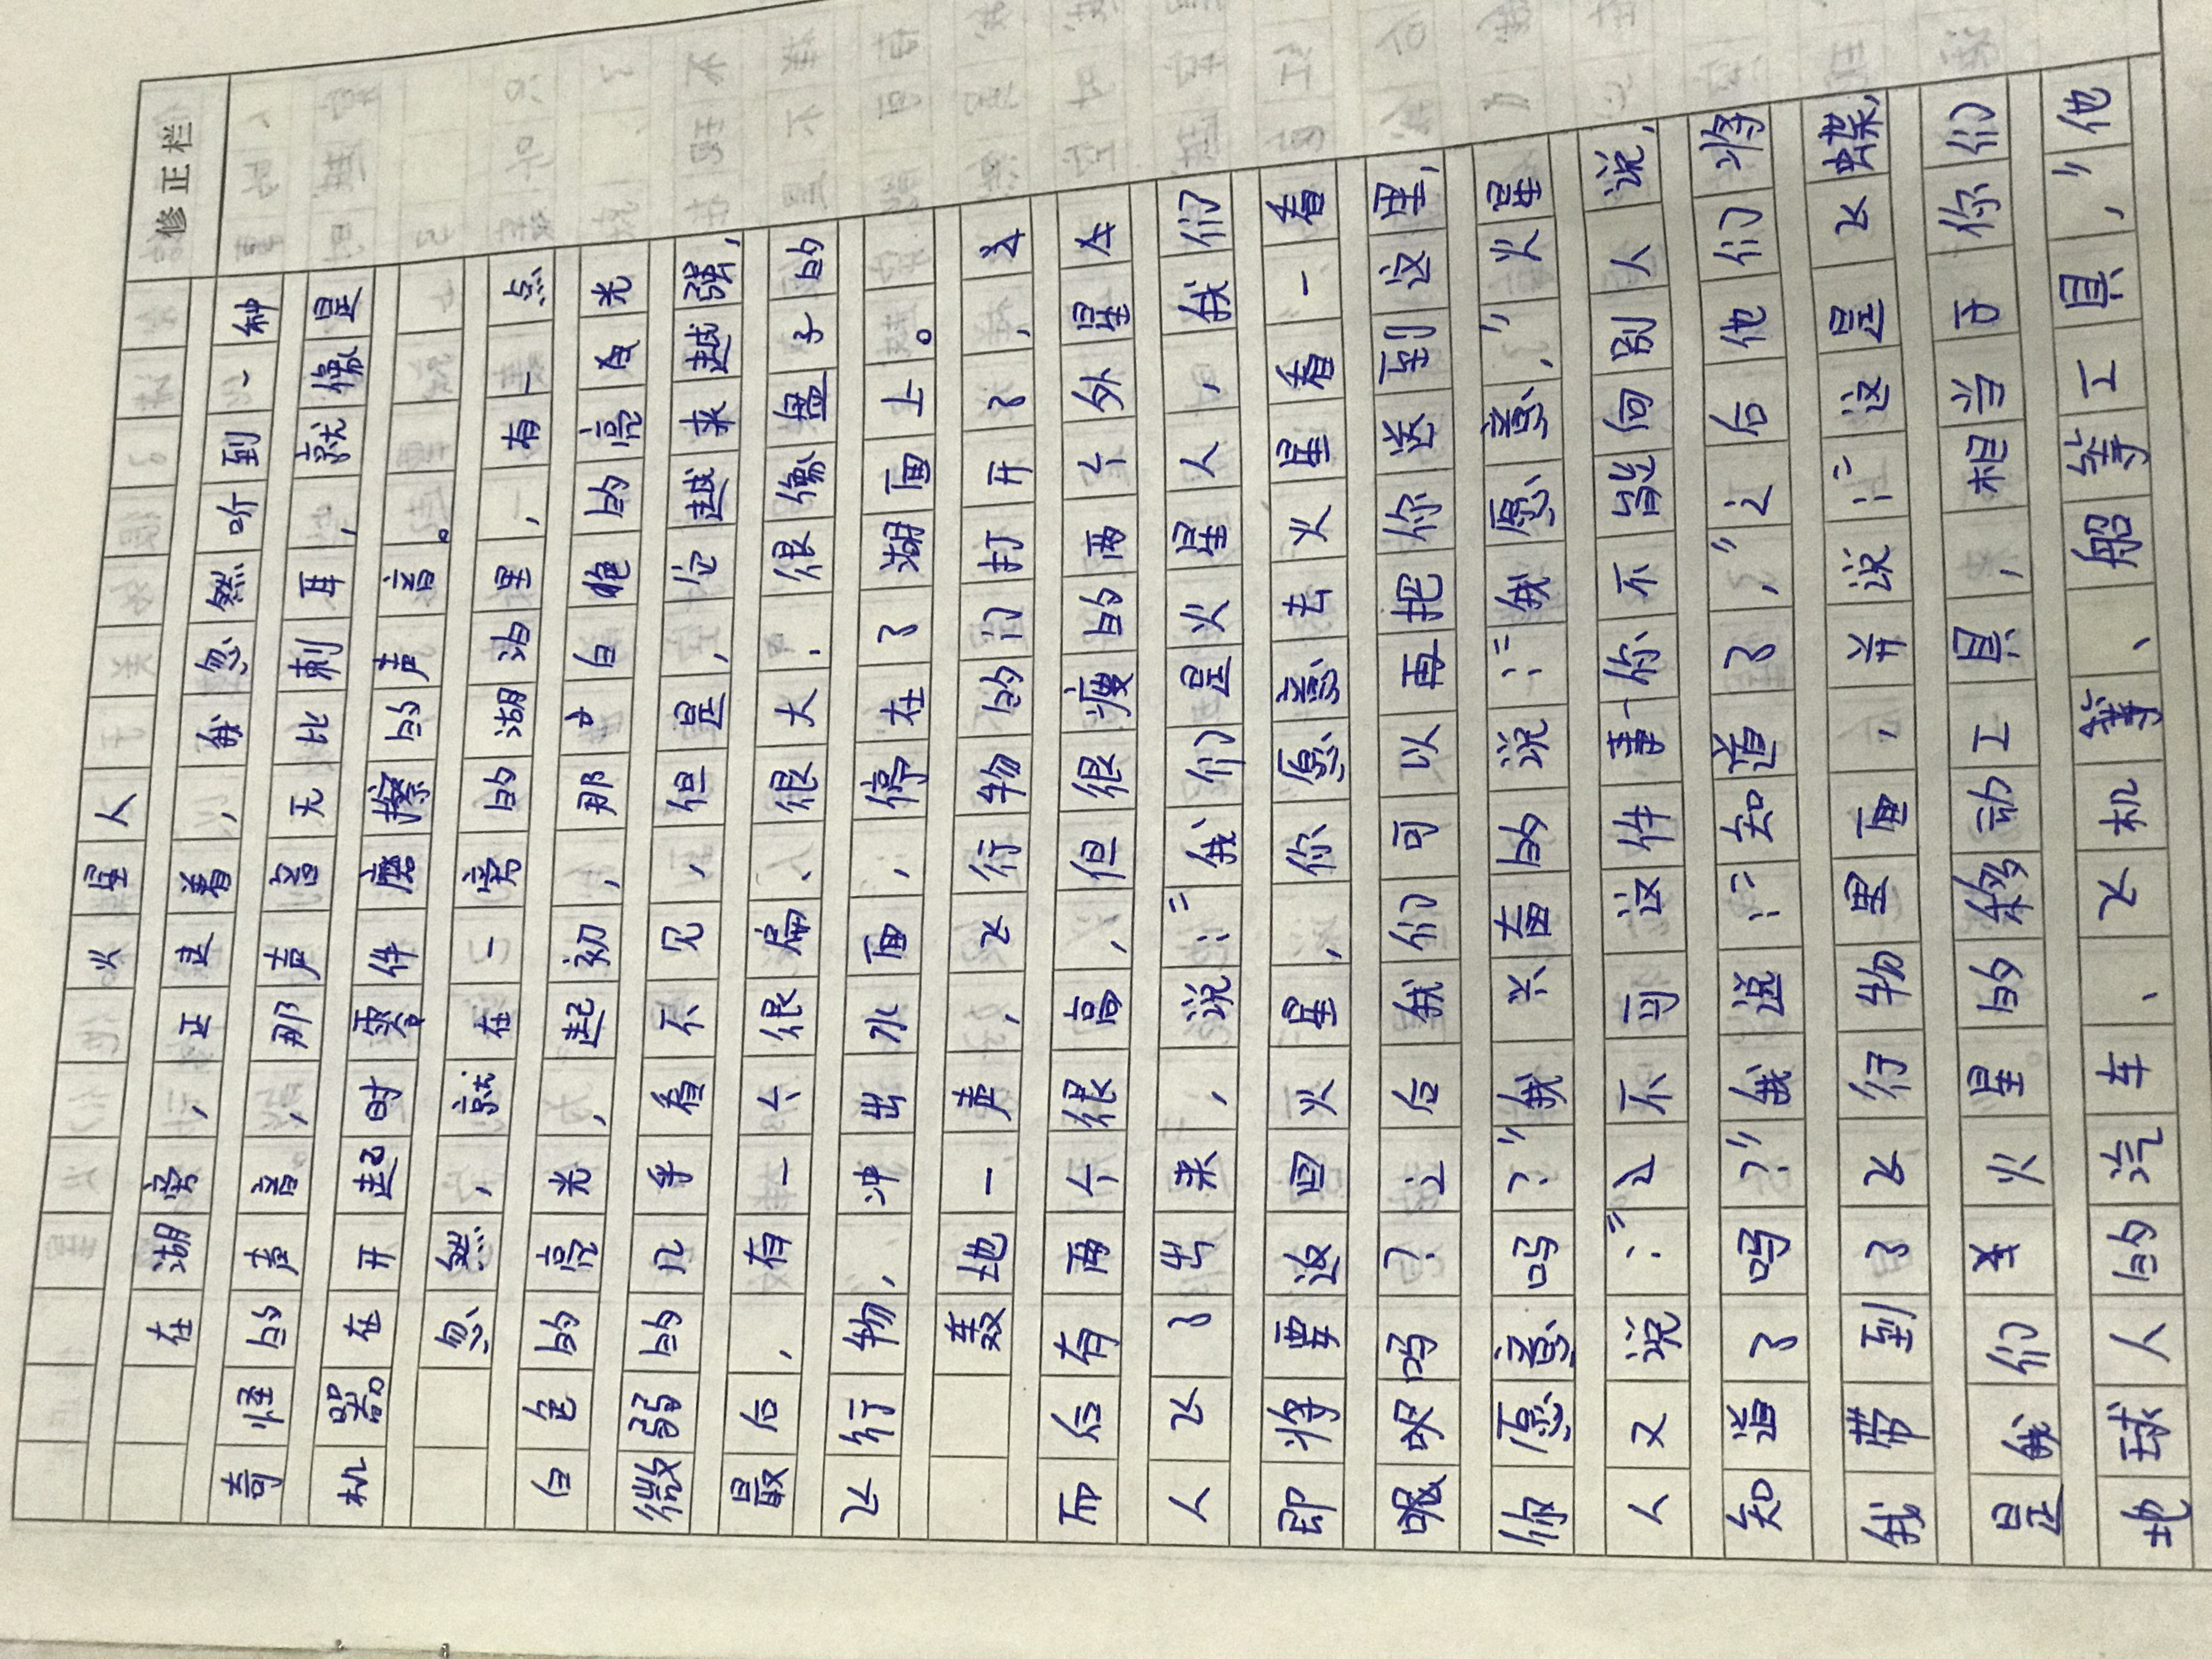 火星人
在湖旁，正走着，我忽然听到一种
奇怪的声音，那声音无比刺耳，就像是
机器在开起时零件磨擦的声音。
忽然，就在一旁的湖泊里，有一点
白色的亮光，起初，那白的亮度光
微弱的几乎看不见，但是，它越来越强，
最后，有一个很扁、很大、很像盘子的
飞行物，冲出水面，停在了湖面上。
轰地一声，飞行物的门打开了，
有两个很高，但很瘦的两个外星
人飞了出来，说：“我们是火星人，我们
即将要返回火星，你愿意去火星看一看
眼吗？之后我们可以再把你送到这里，
你愿意吗？”我兴奋的说：“我愿意，”火星
人又说：“不可这件事你不能向别人说，
知道了吗？”我说：“知道了，”之后他们将
我带到了飞行物里面，并说：“这是飞碟，
是我们火星的移动工具，相当于你们
地球人的汽车、飞机、船等工具，”他
修正栏